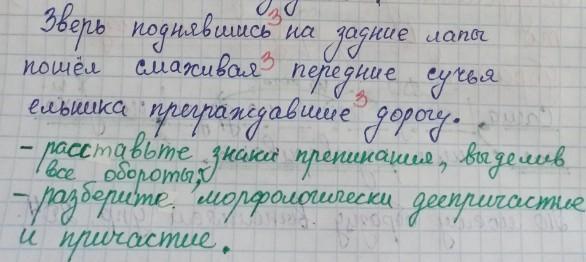 Зверь поднявшись³ на задние лапы
пошёл смаживая³ передние сучья
ельника преграждавшие³ дорогу.
- расставьте знаки препинания, выделив
все обороты,
- разберите морфологически деепричастие
и причастие.